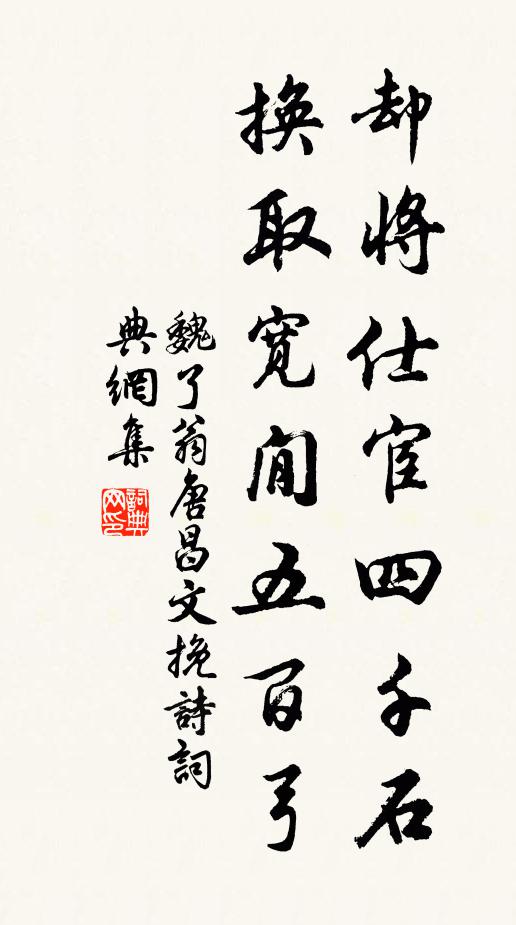 却將仕宦四千石
換取寬閒五百弓
魏了翁唐昌文挽詩詞
典網集
詞典网印